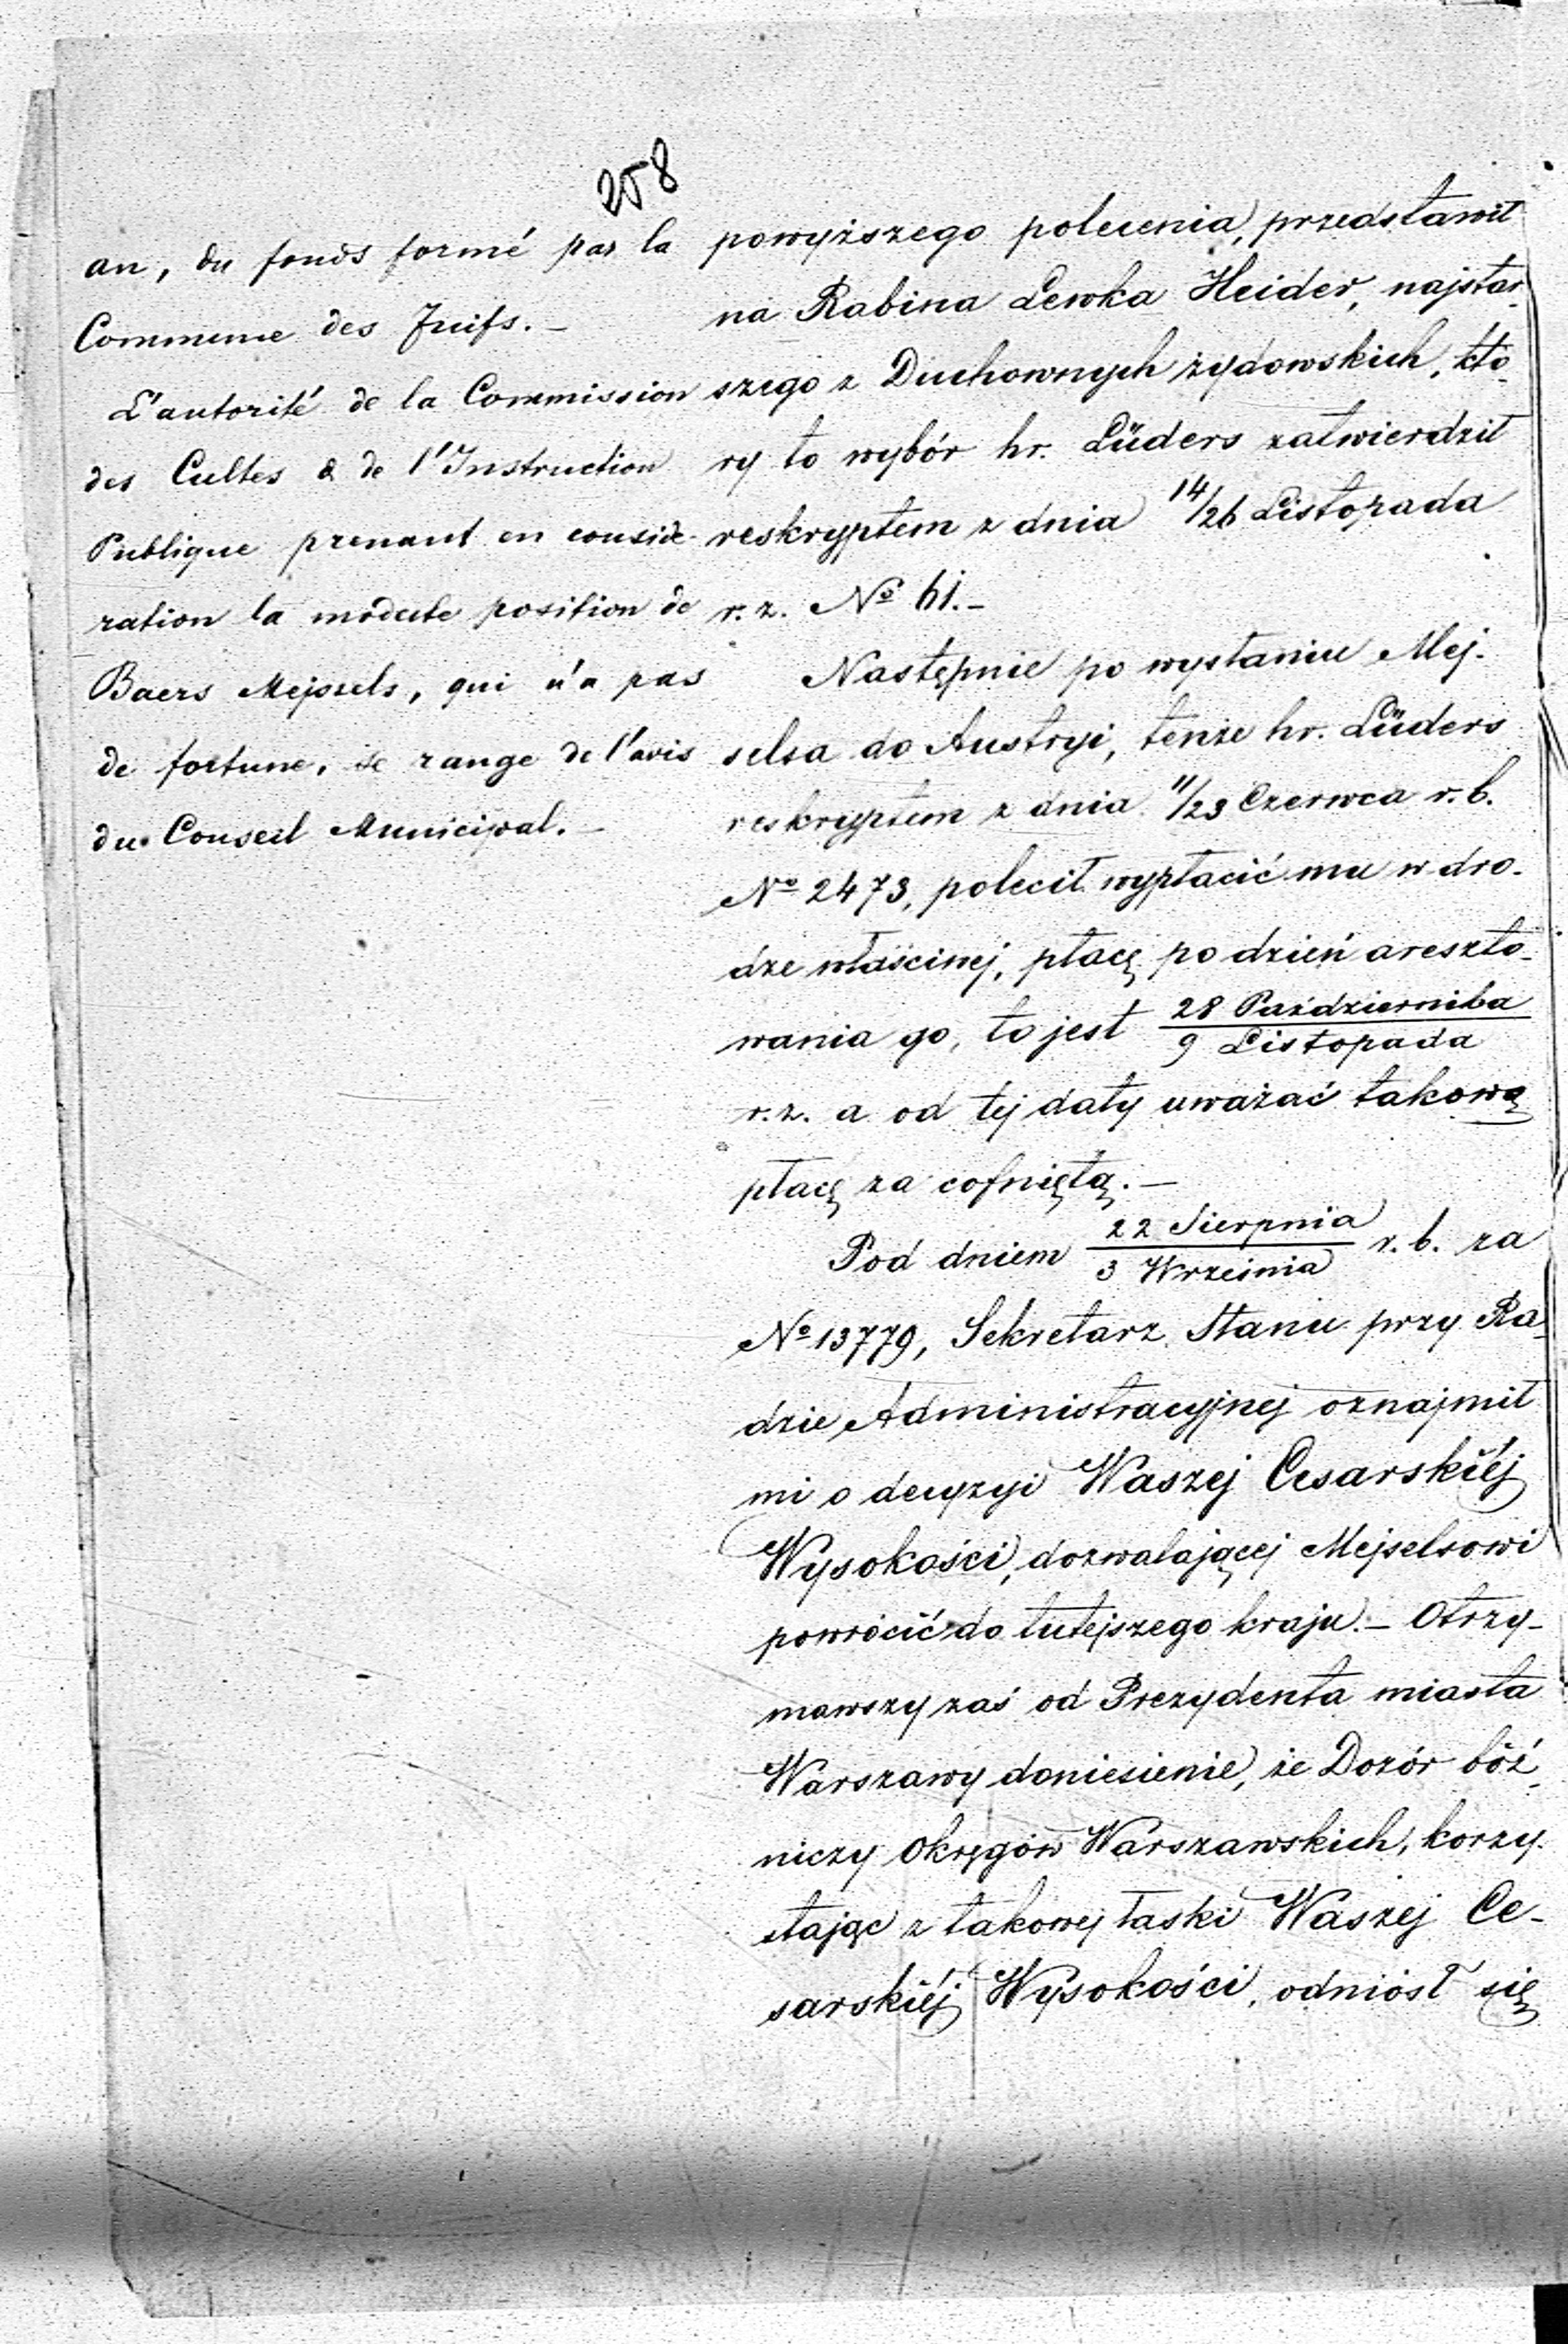 258
an, du fonds formé par la
Commune des Juifs. –
L'autorité de la Commission
des Cultes & de l'Instruction
Publique prenant en considé-
ration la modeste position de
Baers Mejsels, qui n'a pas
de fortune, se range de l'avis
du Conseil Municipal. –
powyższego polecenia, przedstawił
na Rabina Lewka Heider, najstar-
szego z Duchownych żydowskich, któ-
ry to wybór hr. Lüders zatwierdził
reskryptem z dnia 14/26 Listopada
r. z. № 61. –
Następnie po wysłaniu Mej-
selsa do Austryi, tenże hr. Lüders
reskryptem z dnia 11/23 Czerwca r. b.
№ 2473, polecił wypłacić mu w dro-
dze właściwej, płacę po dzień areszto-
wania go, to jest 28 Października / 9 Listopada
r. z. a od tej daty uważać takową
płacę za cofniętą. –
Pod dniem 22 Sierpnia / 3 Września r. b. za
№ 13779, Sekretarz Stanu przy Ra-
dzie Administracyjnej oznajmił
mi o decyzyi Waszej Cesarskiéj
Wysokości, dozwalającej Mejselsowi
powrócić do tutejszego kraju. – Otrzy-
mawszy zaś od Prezydenta miasta
Warszawy doniesienie, że Dozór bóż-
niczy Okręgów Warszawskich, korzy-
stając z takowej łaski Waszej Ce-
sarskiéj Wysokości, odniósł się